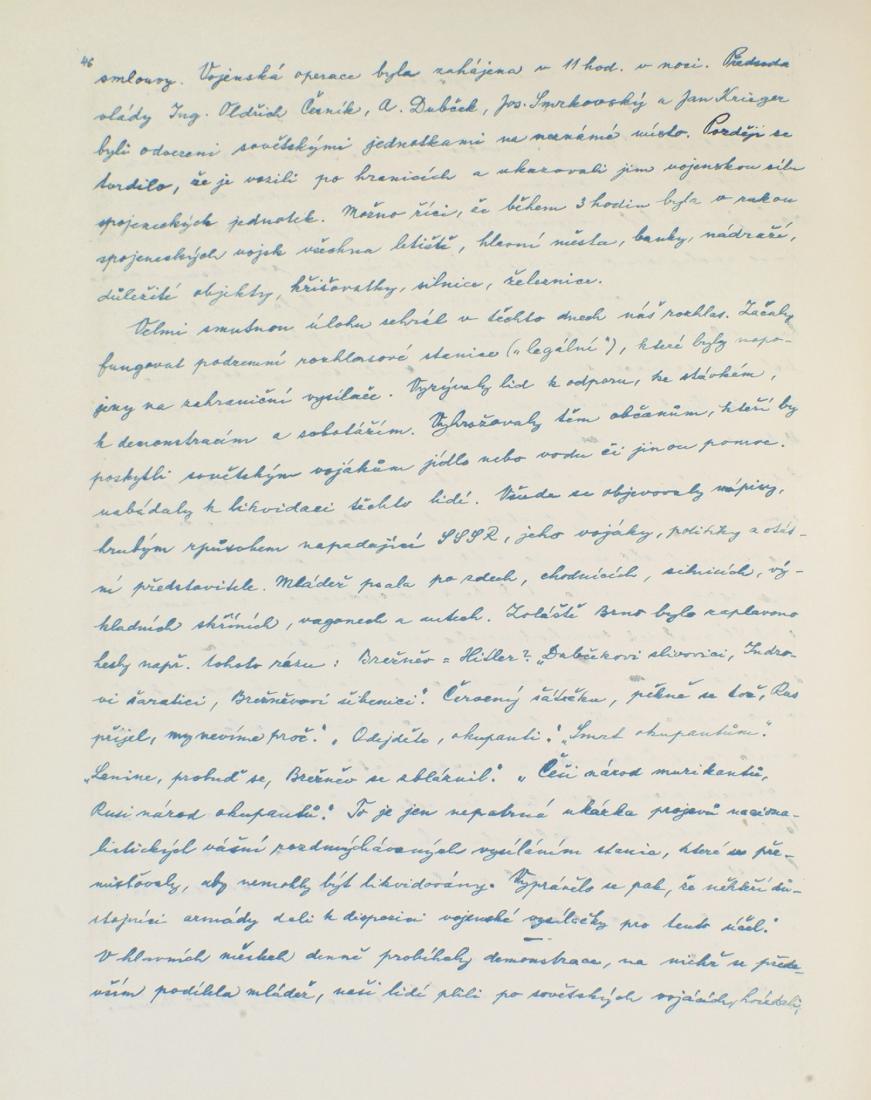 46
smlouvy. Vojenská operace byla zahájena v 11 hod. v noci. Předseda
vlády Ing. Oldřich Černík, A. Dubček, Jos. Smrkovský a Jan Krieger
byli odvezeni sovětskými jednotkami na neznámé místo. Později se
tvrdilo, že je vozili po hranicích a ukazovali jim vojenskou sílu
spojeneckých jednotek. Možno říci, že během 3 hodin byla v rukou
spojeneckých vojsk všechna letiště, hlavní města, banky, nádraží,
důležité objekty, křižovatky, silnice, železnice.
Velmi smutnou úlohu sehrál v těchto dnech náš rozhlas. Začaly
fungovat podzemní rozhlasové stanice („legální"), které byly napo-
jeny na zahraniční vysílače. Vyzývaly lid k odporu, ke stávkám,
k demonstracím a sabotážím. Vyhrožovaly těm občanům, kteří by
poskytli sovětským vojákům jídlo nebo vodu či jinou pomoc.
nabádaly k likvidaci těchto lidí. Všude se objevovaly nápisy,
hrubým způsobem napadající SSSR, jeho vojáky, politiky a
ní představitele. Mládež psala po zdech, chodnících, silnicích, vý-
kladních skříních, vagonech a autech. Zvláště Brno bylo zaplaveno
hesly např. tohoto rázu: Brežněv = Hitler? „Dubčekovi slivovici, Indro-
vi šaratici, Brežněvovi šibenici". Červený šátečku, pěkně se toč, Rus
přijel, my nevíme proč." „Odejděte, okupanti." „Smrt okupantům".
„Lenine, probuď se, Brežněv se zbláznil." „Češi národ muzikantů,
Rusi národ okupantů." To je jen nepatrná ukázka projevů naciona-
listických vášní rozdmýchávaných vysíláním stanic, které se pře-
misťovaly, aby nemohly být likvidovány. Vyprávělo se pak, že někteří dů-
stojníci armády dali k disposici vojenské vysílačky pro tento účel."
V hlavních městech denně probíhaly demonstrace, na nichž se přede-
vším podílela mládež, naši lidí plili po sovětských vojácích, hvízdali,